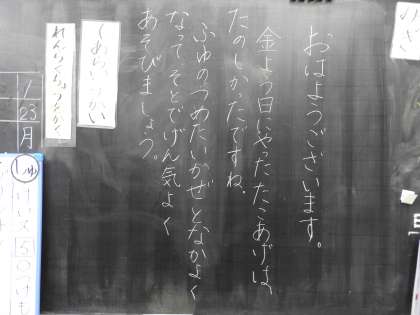 おはようございます。
金よう日にやったたこあげは、
たのしかったですね。
ふゆのつめたいかぜとなかよく
なってそとでげん気よく
あそびましょう。
れんらくちょうをかく
1
23
月